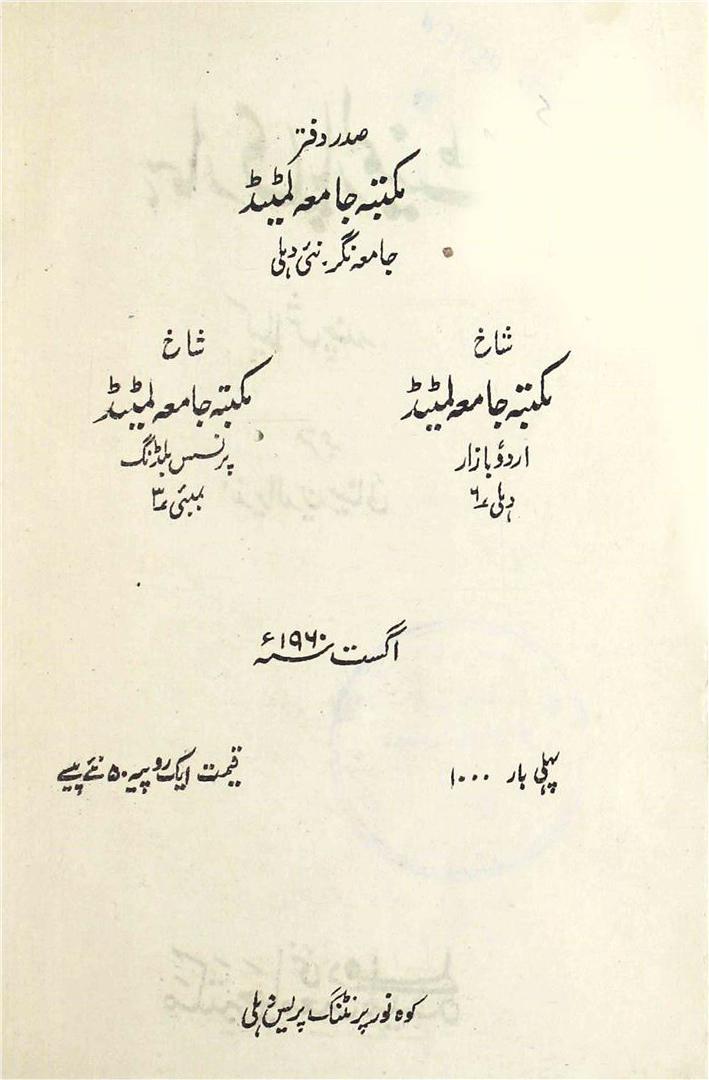 صدر دفتر
مکتبہ جامعہ لمٹیڈ
جامعہ نگر۔ نئی دہلی
شاخ
مکتبہ جامعہ لمٹیڈ
اردو بازار
دہلی ۶
شاخ
مکتبہ جامعہ لمٹیڈ
پرنسس بلڈنگ
بمبئی ۳
اگست ۱۹۶۰ء
پہلی بار ۱۰۰۰
قیمت ایک روپیہ ۵۰ نئے پیسے
کوہ نور پرنٹنگ پریس دہلی